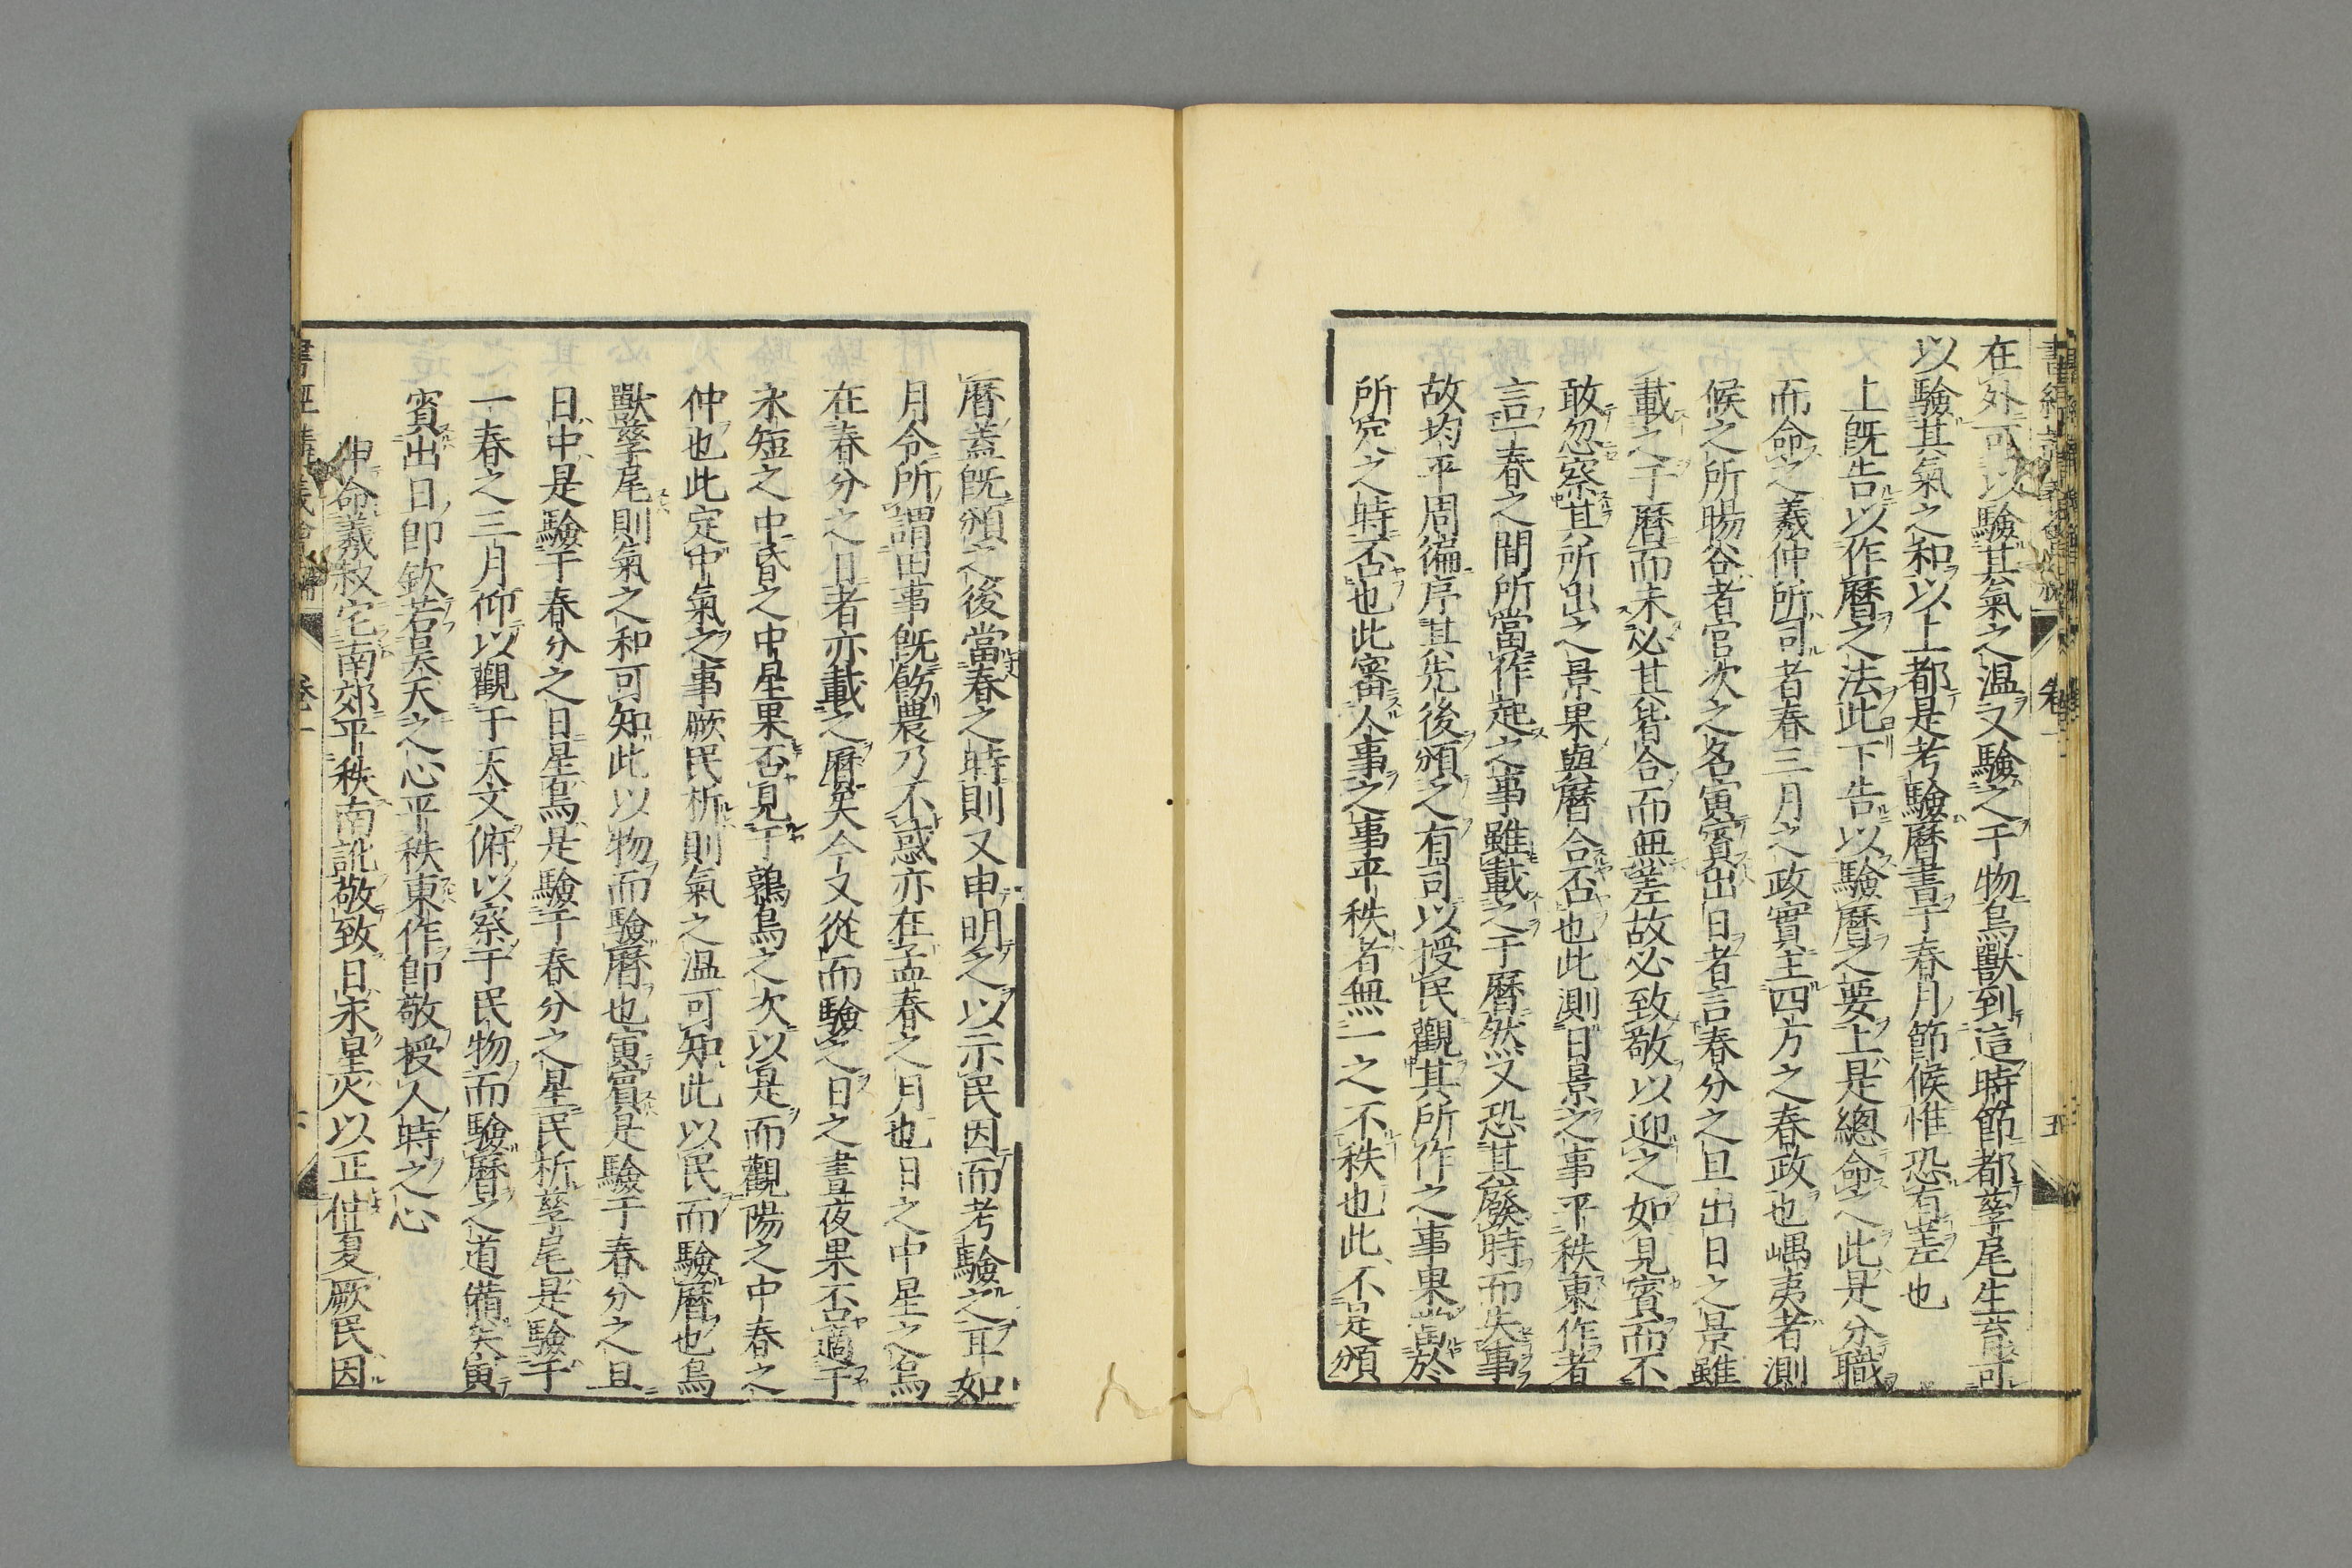 在外可以驗其氣之温又驗之于物鳥獸到這時節都孳尾生育可
以驗其氣之和以上都是考驗曆書于春月節候惟恐有差也
上既告以作曆之法此下告以驗曆之要上是總命之此是分職
而命之羲仲所司者春三月之政實主四方之春政也嵎夷者測
候之所暘谷者官次之名寅賓出日者言春分之旦出日之景雖
載之于曆而未必其皆合而無差故必致敬以迎之如見賓而不
敢忽察其所出之景果與曆合否也此測日景之事平秩東作者
言一春之間所當作起之事雖載之于曆然又恐其廢時而失事
故均平周徧序其先後頒之有司以授民觀其所作之事果當於
所定之時否也此審人事之事平秩者無一之不秩也此不是頒
曆蓋既頒之後當春之時則又申明之以示民因而考驗之耳如
月令所謂田事既飭農乃不惑亦在孟春之月也日之中星之鳥
在春分之日者亦載之曆矣今又從而驗之日之晝夜果否適于
永短之中昏之中星果否見于鶉鳥之次以是而觀陽之中春之
仲也此定中氣之事厥民析則氣之温可知此以民而驗曆也鳥
獸孳尾則氣之和可知此以物而驗曆也寅賓是驗于春分之旦
日中是驗于春分之日星鳥是驗于春分之星民析孳尾是驗于
一春之三月仰以觀于天文俯以察于民物而驗曆之道備矣寅
賓出日即欽若昊天之心平秩東作即敬授人時之心
申命羲叔宅南郊平秩南訛敬致日永星火以正仲夏厥民因